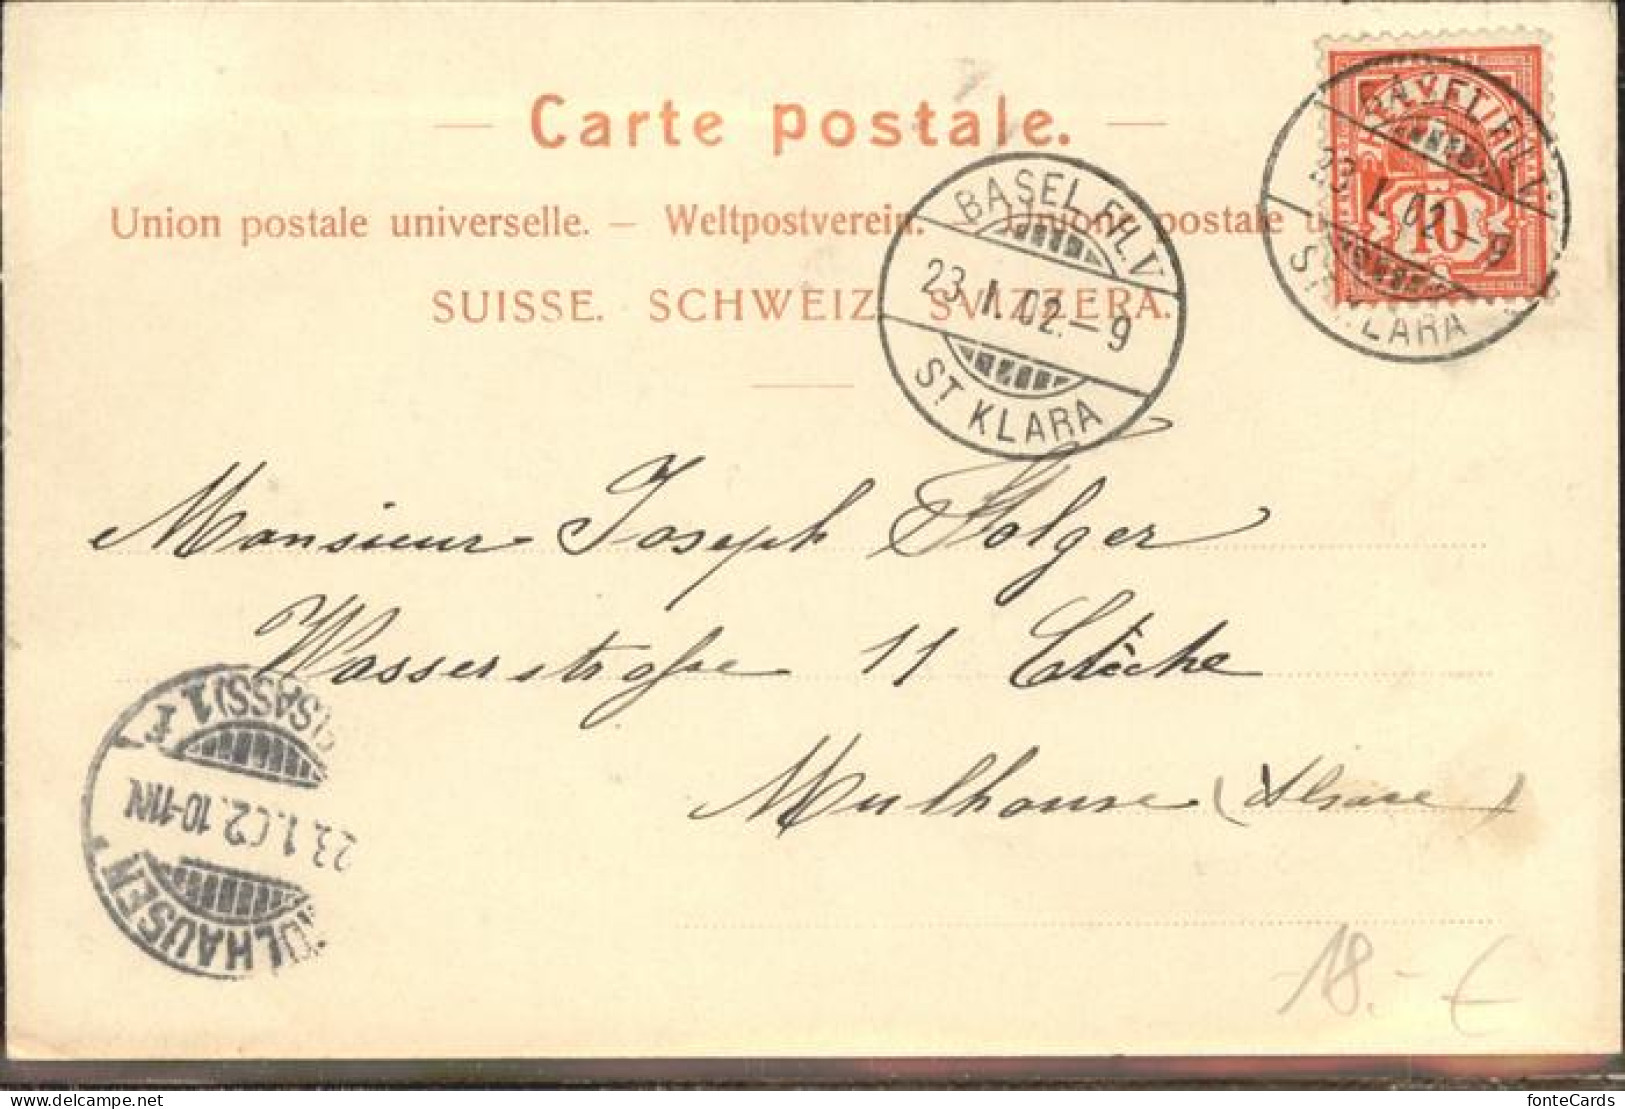 — Carte postale. —
Union postale universelle. — Weltpostverein. — Unione postale u
SUISSE. SCHWEIZ. SVIZZERA.
BASEL FIL. V
23. I. 02. – 9
ST. KLARA
BASEL FIL. V
23. I. 02. – 9
ST. KLARA
10
Monsieur Joseph Folger
Wasserstrasse 11
Mulhouse (Alsace)
MÜLHAUSEN
23.1.02. 10-11N
(ELSASS) 1
18.- €
fonteCards